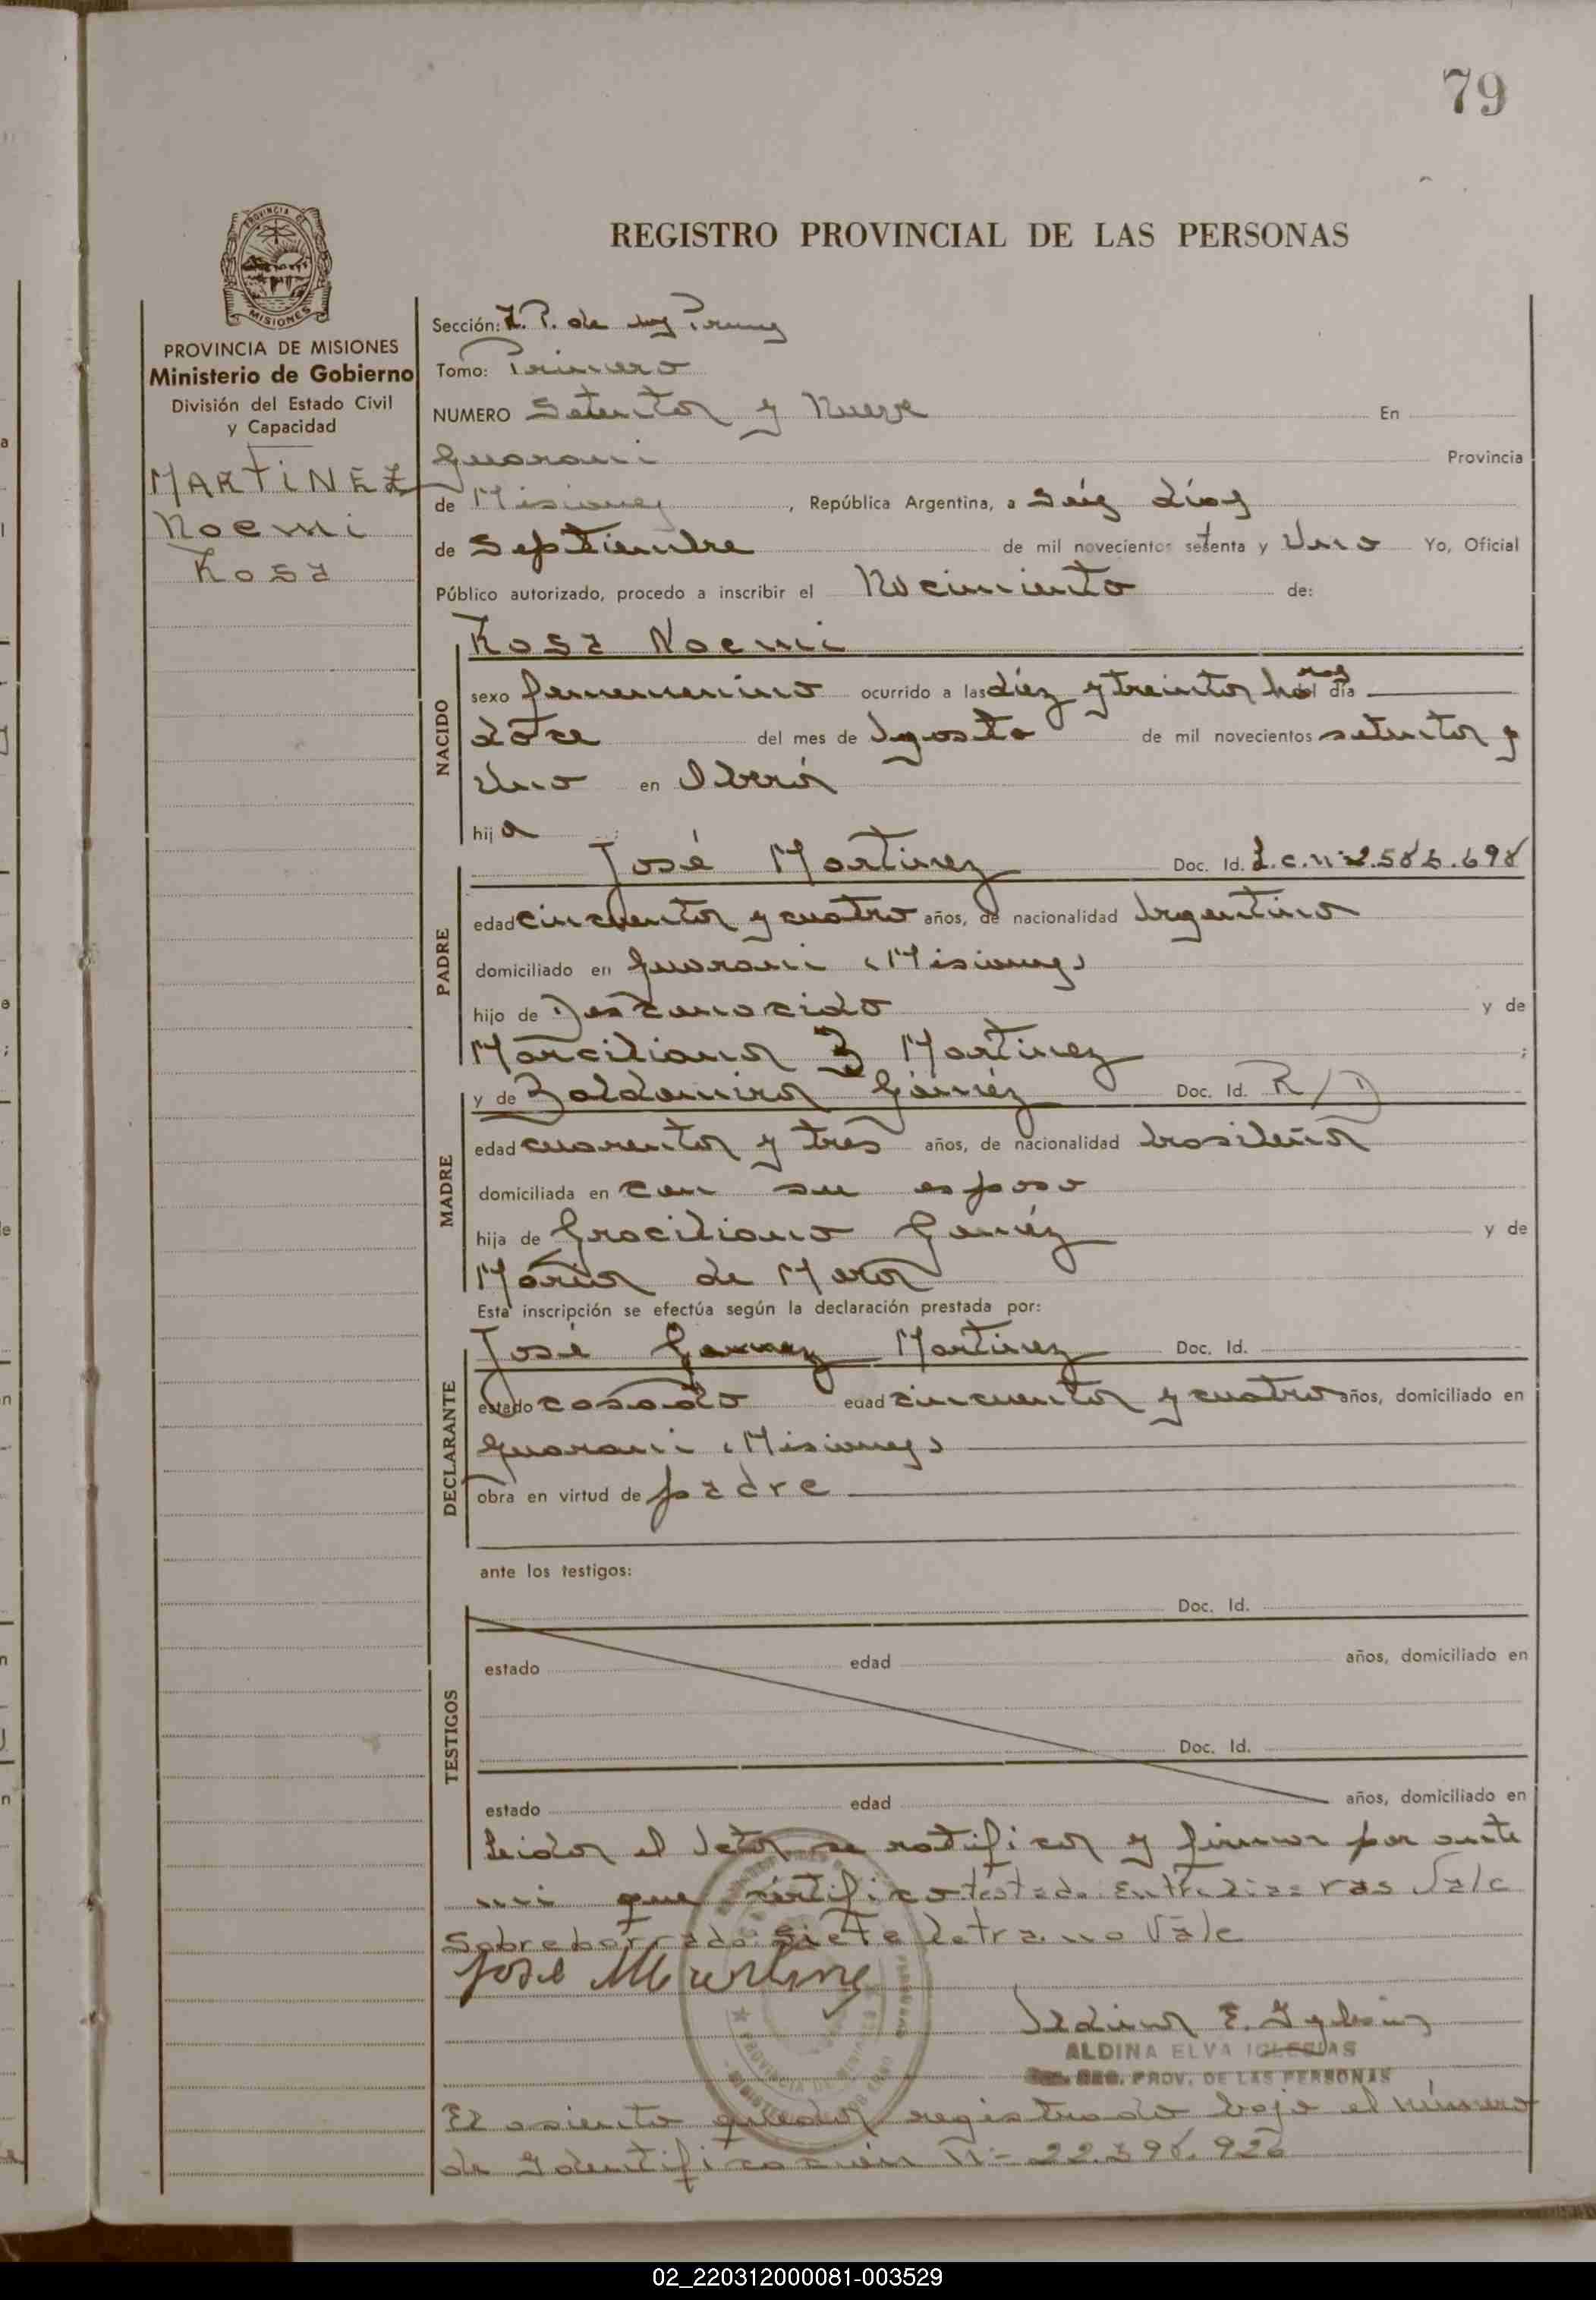 79
REGISTRO PROVINCIAL DE LAS PERSONAS
PROVINCIA DE MISIONES
Ministerio de Gobierno
División del Estado Civil
y Capacidad
MARTINEZ
Noemi
Rosa
Sección: de
Tomo: Primero
NUMERO Setenta y Nueve En
Guarani Provincia
de Misiones, República Argentina, a Seis días
de Septiembre de mil novecientos setenta y Uno Yo, Oficial
Público autorizado, procedo a inscribir el Nacimiento de:
Rosa Noemi
NACIDO
sexo femenenino ocurrido a las diez y treinta horas del día
doce del mes de Agosto de mil novecientos setenta y
Uno en Oberá
hija
PADRE
José Martinez Doc. Id. L.C.Nº
edad cincuenta y cuatro años, de nacionalidad Argentino
domiciliado en Guarani (Misiones)
hijo de Desconocido y de
Marciliana Martinez;
MADRE
y de Baldomira Gómez Doc. Id. R/D
edad cuarenta y tres años, de nacionalidad brasileña
domiciliada en con su esposo
hija de Graciliano Goméz y de
Maria de
Esta inscripción se efectúa según la declaración prestada por:
DECLARANTE
José Martinez Doc. Id.
estado casado edad cincuenta y cuatro años, domiciliado en
Guarani (Misiones)
obra en virtud de padre
ante los testigos:
TESTIGOS
Doc. Id.
estado edad años, domiciliado en
Doc. Id.
estado edad años, domiciliado en
Leida el Acta se ratifica y firma por ante
mi que certifico testado Entrelineas ras Vale
Sobreborrado Siete letra no Vale
José Martinez
Aldina E. Iglesias
ALDINA ELVA IGLESIAS
REG. PROV. DE LAS PERSONAS
El asiento queda registrado bajo el número
de Identificacion Nº
02_220312000081-003529